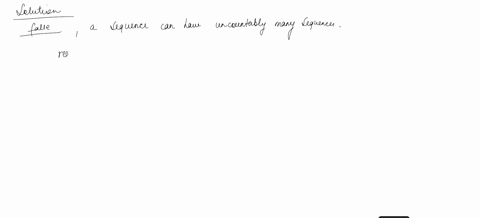 Solution
false, a sequence can have uncountably many sequences.